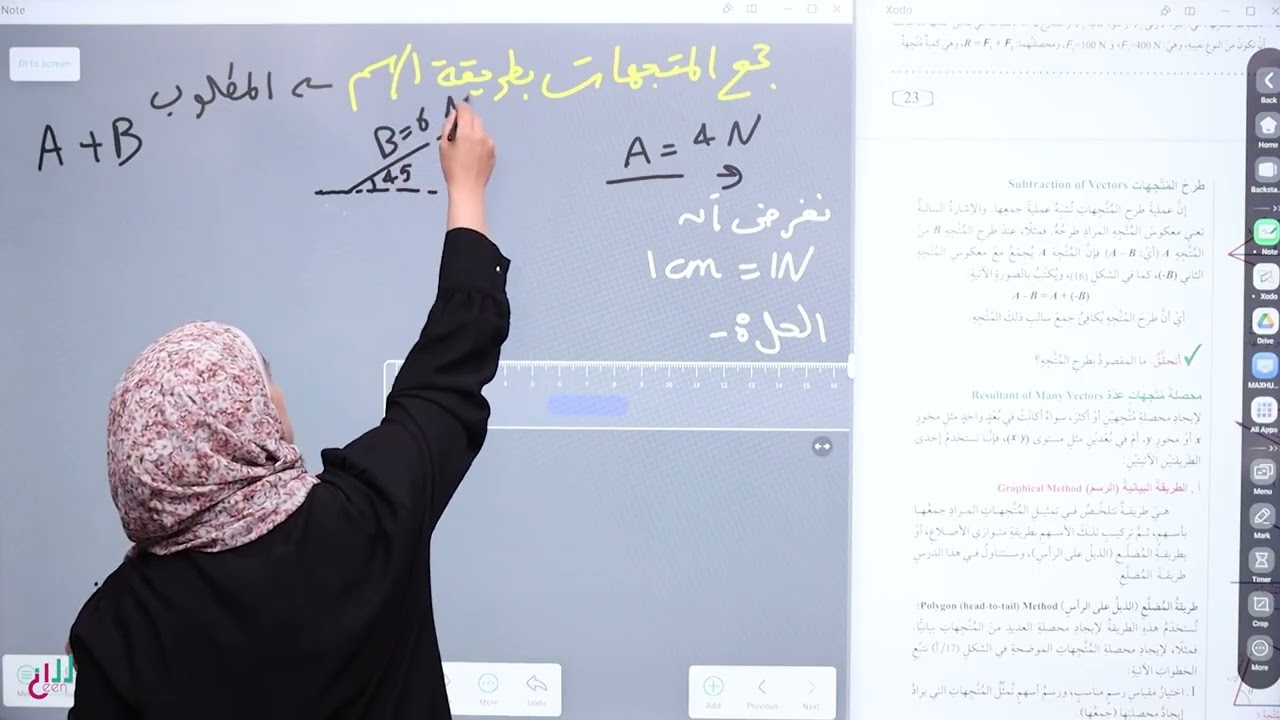 Note
fit to screen
جمع المتجهات بطريقة الرسم
المطلوب
A + B
B = 6 N
45
A = 4 N
نفرض أن
1 cm = 1N
الحل :-
4 5 6 7 8 9 10 11 12 13 14 15 16
Undo
Add
Previous
Next
een
Xodo
أنْ تكونَ من النوعِ نفسِهِ، وهيَ F₁=400 N و F₂=100 N، ومحصلتُهما: R = F₁ + F₂، وهيَ كميةٌ مُتَّجِهةٌ
23
طرحُ المُتَّجِهاتِ Subtraction of Vectors
إنَّ عمليةَ طرحِ المُتَّجِهاتِ تُشبِهُ عمليةَ جمعِها. والإشارةُ السالبةُ
تعني معكوسَ المُتَّجِهِ المرادِ طرحُهُ. فمثلًا، عندَ طرحِ المُتَّجِهِ B منَ
المُتَّجِهِ A (أيْ: A - B) فإنَّ المُتَّجِهَ A يُجمَعُ معَ معكوسِ المُتَّجِهِ
الثاني (-B)، كما في الشكلِ (16)، ويُكتَبُ بالصورةِ الآتيةِ:
A - B = A + (-B)
أيْ أنَّ طرحَ المُتَّجِهِ يُكافِئُ جمعَ سالبِ ذلكَ المُتَّجِهِ.
أتحقَّقُ: ما المقصودُ بطرحِ المُتَّجِهِ؟
محصلةُ متجهاتٍ عدّةٍ Resultant of Many Vectors
لإيجادِ محصلةِ مُتَّجِهَيْنِ أوْ أكثرَ، سواءٌ أكانَتْ في بُعْدٍ واحدٍ مثلِ محورِ
x أوْ محورِ y، أمْ في بُعْدَيْنِ مثلِ مستوى (x-y)، فإنَّنا نستخدمُ إحدى
الطريقتيْنِ الآتيتيْنِ:
أ . الطريقةُ البيانيةُ (الرسمُ) Graphical Method
هيَ طريقةٌ تتلخَّصُ في تمثيلِ المُتَّجِهاتِ المرادِ جمعُها
بأسهمٍ، ثمَّ تركيبِ تلكَ الأسهمِ بطريقةِ متوازي الأضلاعِ، أوْ
بطريقةِ المُضلَّعِ (الذيلُ على الرأسِ)، وسنتناولُ في هذا الدرسِ
طريقةَ المُضلَّعِ.
طريقةُ المُضلَّعِ (الذيلُ على الرأسِ) Polygon (head-to-tail) Method:
تُستخدَمُ هذهِ الطريقةُ لإيجادِ محصلةِ العديدِ منَ المُتَّجِهاتِ بيانيًّا
فمثلًا، لإيجادِ محصلةِ المُتَّجِهاتِ الموضحةِ في الشكلِ (17/أ) نتَّبِعُ
الخطواتِ الآتيةَ:
1. اختيارُ مقياسِ رسمٍ مناسبٍ، ورسمُ أسهمٍ تُمثِّلُ المُتَّجِهاتِ التي يرادُ
إيجادُ محصلتِها (جمعُها)
Back
Home
Backsta..
Note
Xodo
Drive
MAXHU..
All Apps
Menu
Mark
Timer
Crop
More